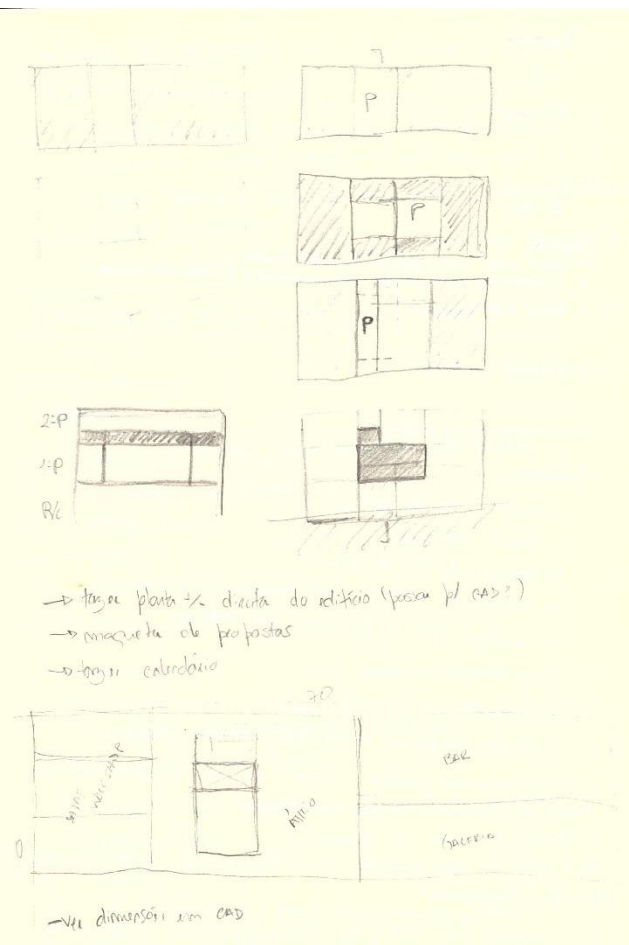 P
P
P
2ºP
1ºP
R/c
→ trazer planta +/- directa do edifício (passar p/ CAD?)
→ maqueta de propostas
→ trazer calendário
70
BAR
Átrio
0
GALERIA
- Ver dimensões em CAD